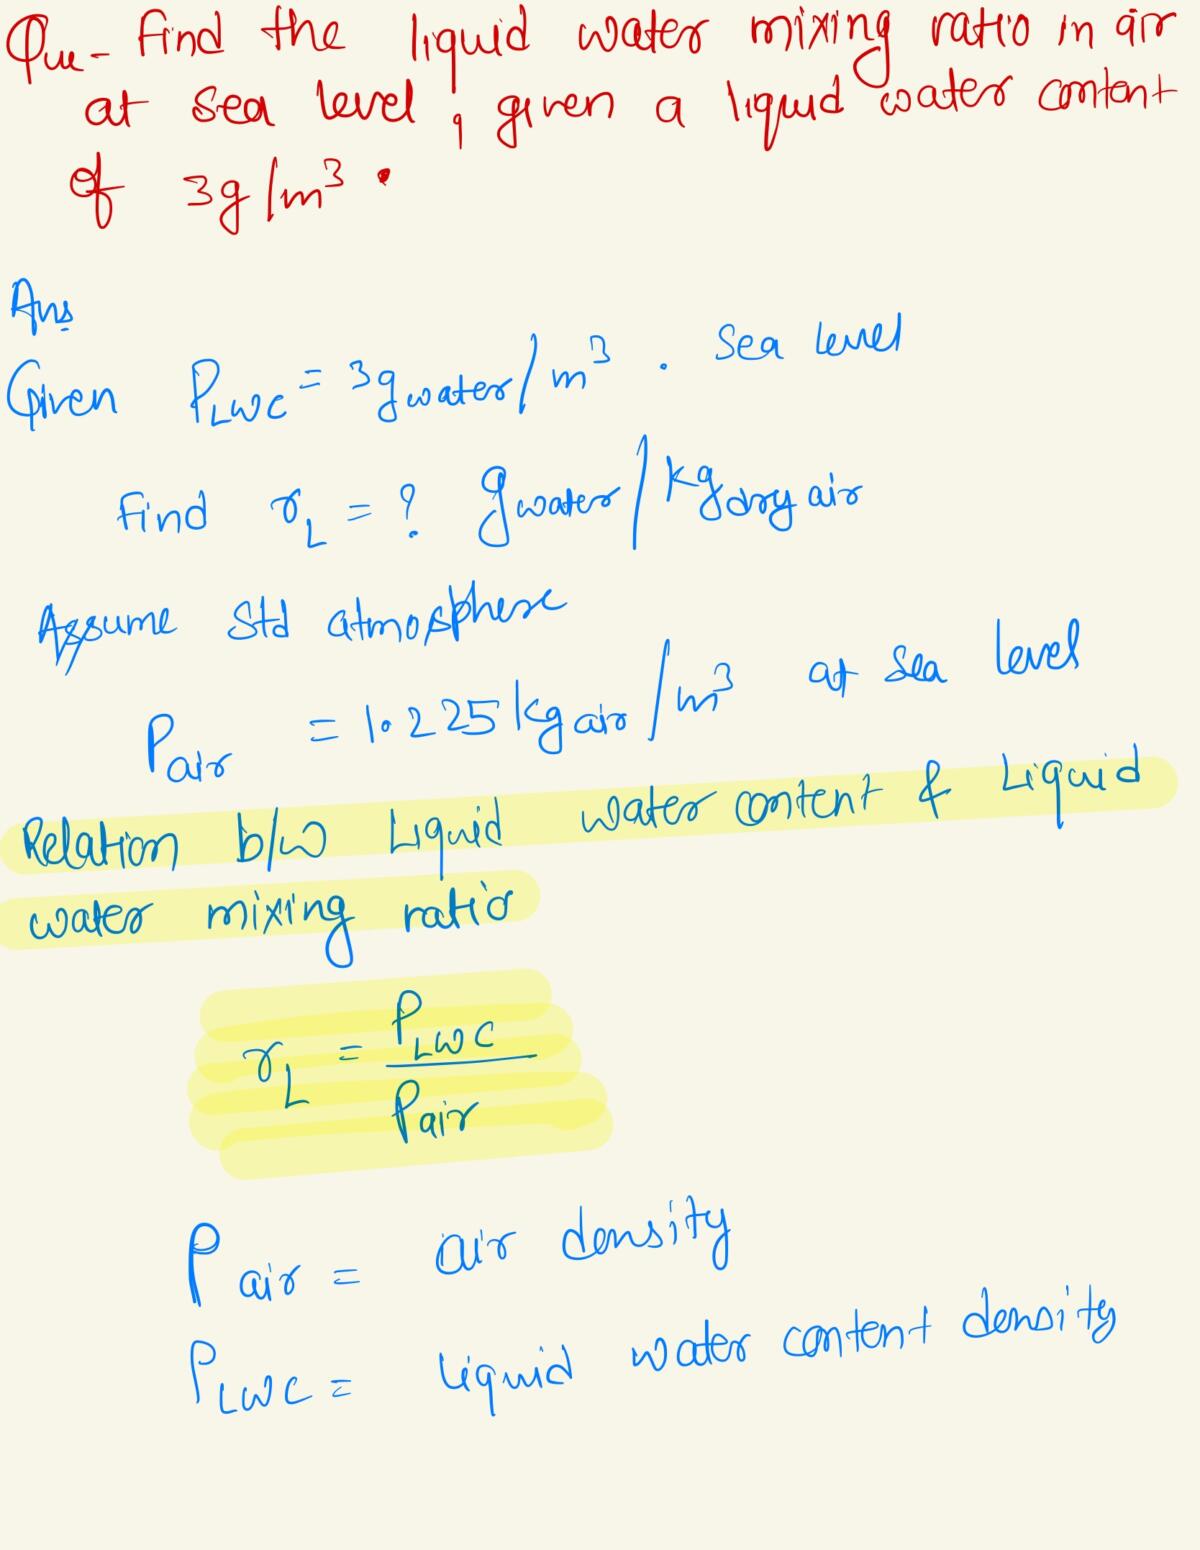 Que- Find the liquid water mixing ratio in air
at sea level, given a liquid water content
of 3g/m³.
Ans
Given ρ_LWC = 3g water/m³. Sea level
Find r_L = ? g water/kg dry air
Assume Std atmosphere
ρ_air = 1.225 kg air/m³ at sea level
Relation b/w Liquid water content & Liquid
water mixing ratio
r_L = ρ_LWC / ρ_air
ρ_air = air density
ρ_LWC = Liquid water content density